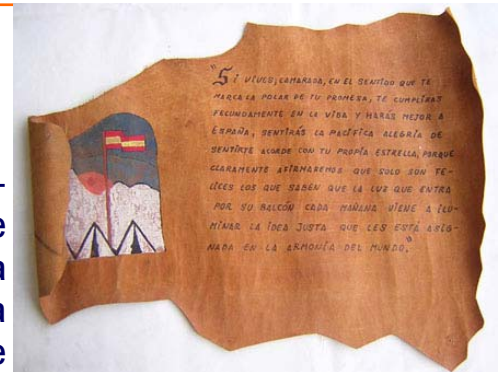 "Si vives, camarada, en el sentido que te
marca la polar de tu promesa, te cumplirás
fecundamente en la vida y harás mejor a
España, sentirás la pacífica alegría de
sentirte acorde con tu propia estrella, porque
claramente afirmaremos que solo son fe-
lices los que saben que la luz que entra
por su balcón cada mañana viene a ilu-
minar la idea justa que les está asig-
nada en la armonía del mundo."
-
e
a
a
e